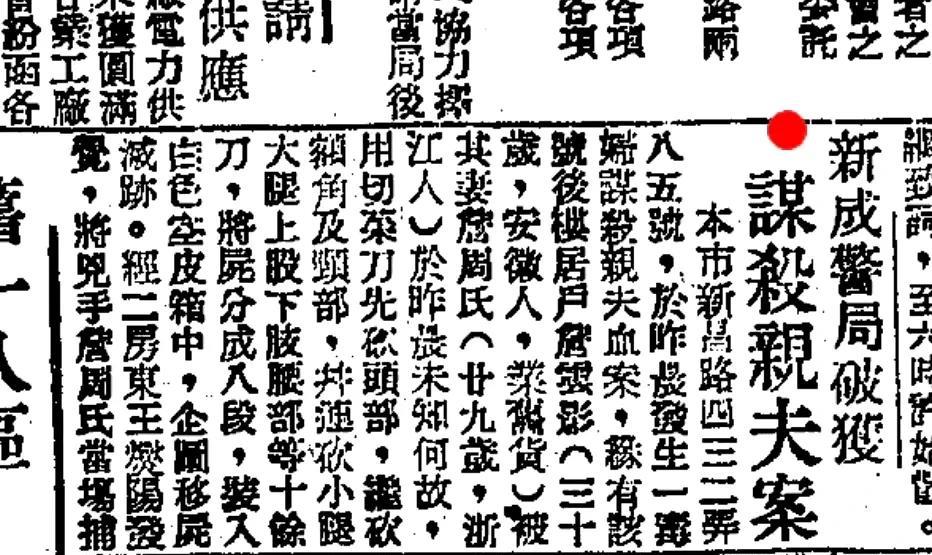 者之
賣之
託
路兩
各項
各項
協力撙
當局後
請
供應
電力供
獲圓滿
業工廠
粉面各
詞，至六時許始
新成警局破獲
謀殺親夫案
本市新昌路四三二弄
八五號，於昨晨發生一毒
婦謀殺親夫血案，緣有該
號後樓居戶詹雲影（三十
歲，安徽人，業貨）被
其妻詹周氏（廿九歲，浙
江人）於昨晨未知何故，
用切菜刀先砍頭部，繼砍
額角及頸部，幷連砍小腿
大腿上股下肢腰部等十餘
刀，將屍分成八段，裝入
白色空皮箱中，企圖移屍
滅跡。經二房東王燮陽發
覺，將兇手詹周氏當場捕